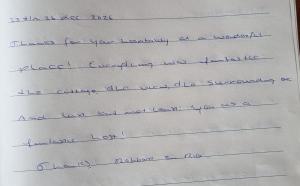 Dec 2026
Thanks for your hospitality at a wonderful
place! Everything was fantastic
the cottage, the view, the surrounding
And last but not least: you as a
fantastic host!
Thanks,